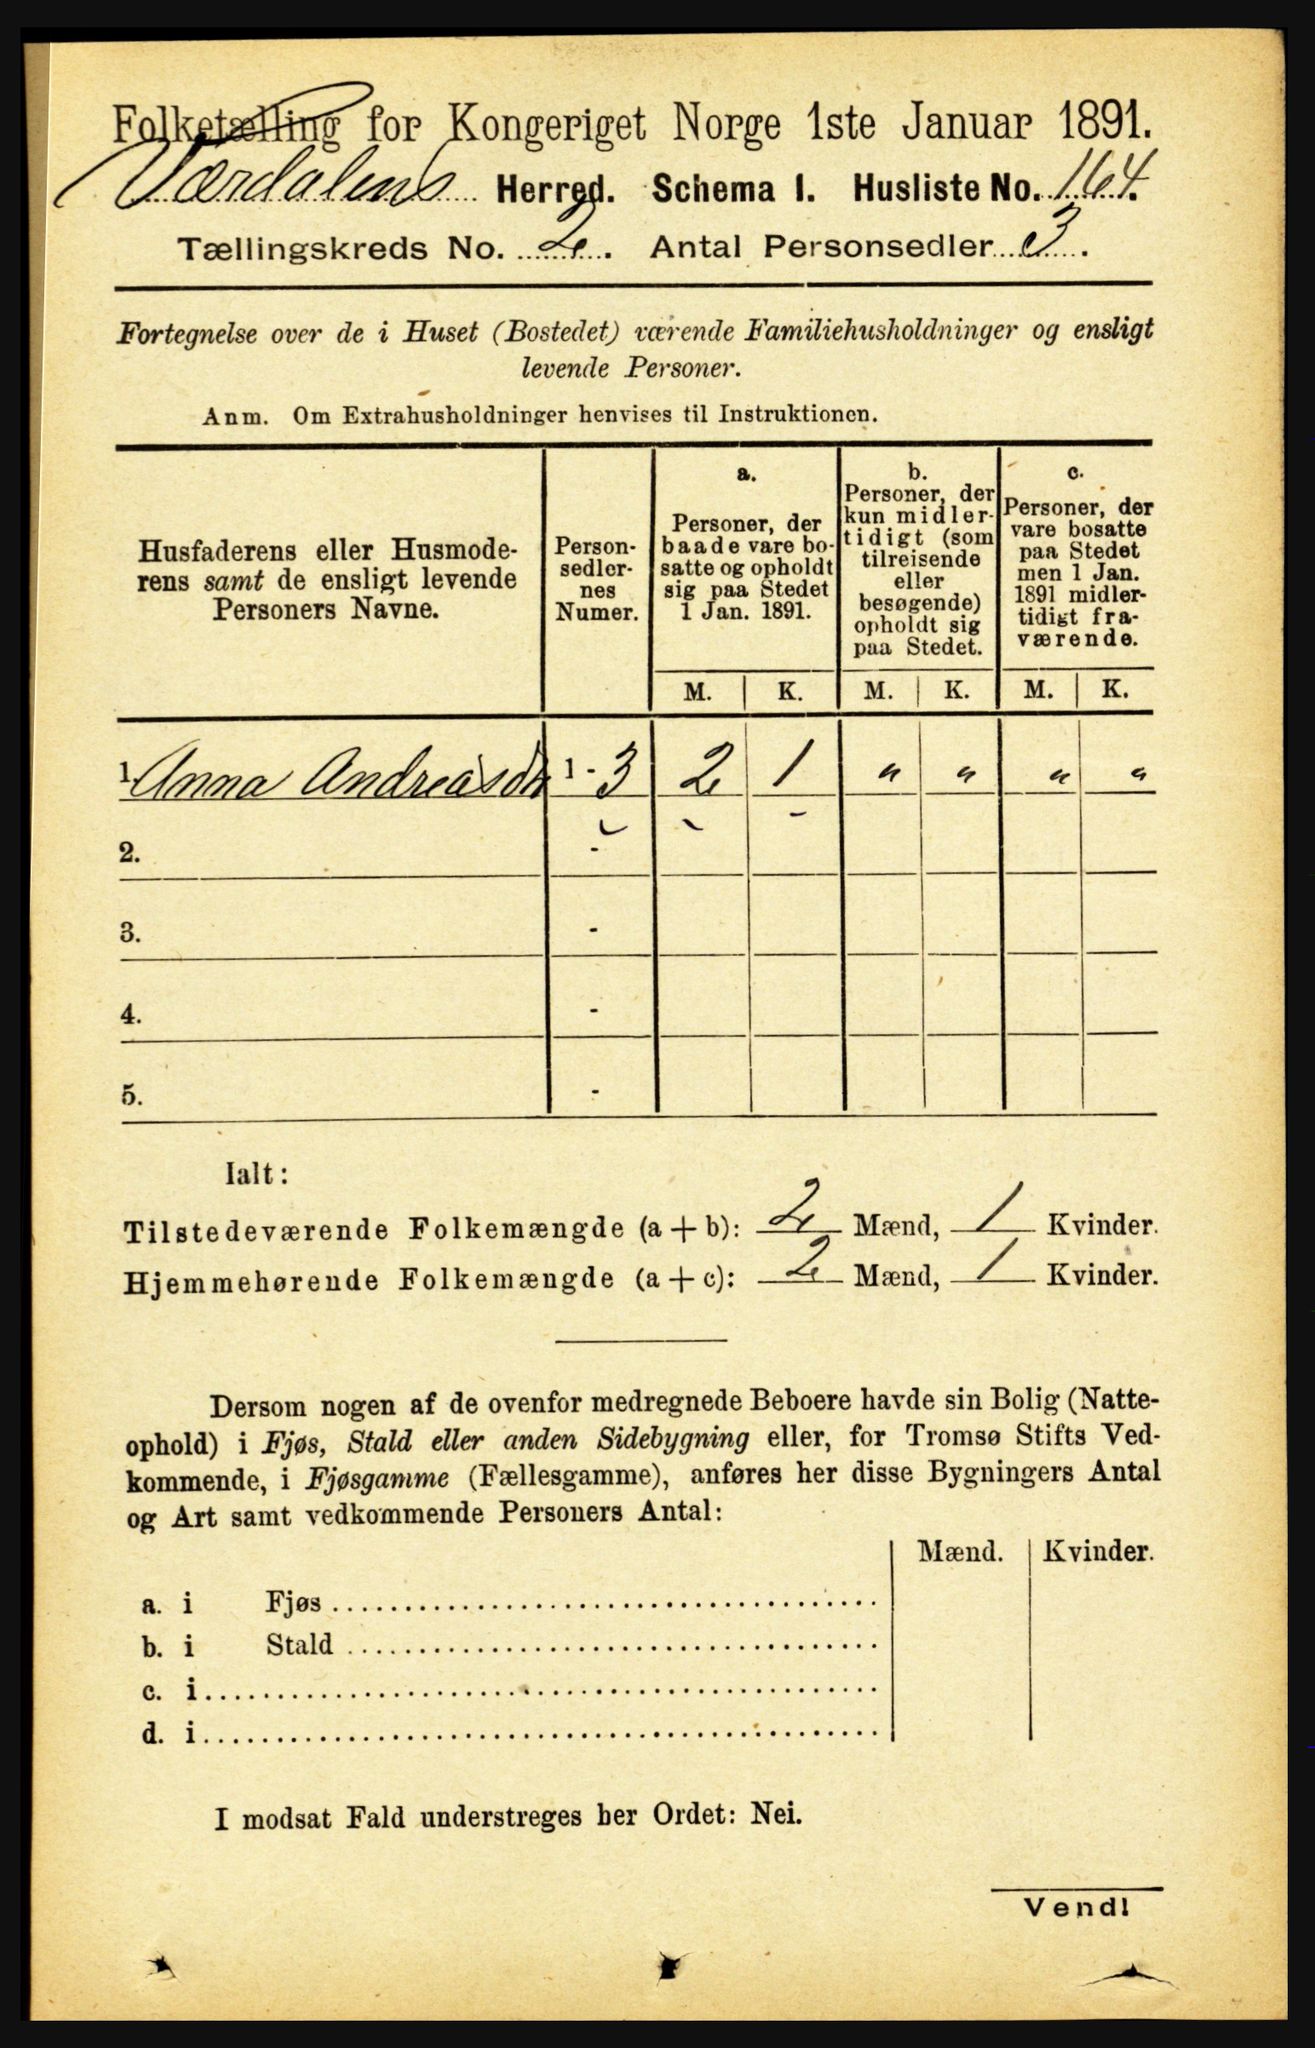 Folketælling for Kongeriget Norge 1ste Januar 1891.
Værdalens Herred. Schema I. Husliste No. 164.
Tællingskreds No. 2. Antal Personsedler 3.
Fortegnelse over de i Huset (Bostedet) værende Familiehusholdninger og ensligt
levende Personer.
Anm. Om Extrahusholdninger henvises til Instruktionen.
Husfaderens eller Husmode-
rens samt de ensligt levende
Personers Navne.
Person-
sedler-
nes
Numer.
a.
Personer, der
baade vare bo-
satte og opholdt
sig paa Stedet
1 Jan. 1891.
b.
Personer, der
kun midler-
tidigt (som
tilreisende
eller
besøgende)
opholdt sig
paa Stedet.
c.
Personer, der
vare bosatte
paa Stedet
men 1 Jan.
1891 midler-
tidigt fra-
værende.
M. K. M. K. M. K.
1. Anna Andreasdtr 1 - 3 2 1 " " " "
2. -
3. -
4. -
5. -
Ialt:
Tilstedeværende Folkemængde (a + b): 2 Mænd, 1 Kvinder.
Hjemmehørende Folkemængde (a + c): 2 Mænd, 1 Kvinder.
Dersom nogen af de ovenfor medregnede Beboere havde sin Bolig (Natte-
ophold) i Fjøs, Stald eller anden Sidebygning eller, for Tromsø Stifts Ved-
kommende, i Fjøsgamme (Fællesgamme), anføres her disse Bygningers Antal
og Art samt vedkommende Personers Antal:
Mænd. Kvinder.
a. i Fjøs
b. i Stald
c. i
d. i
I modsat Fald understreges her Ordet: Nei.
Vend!